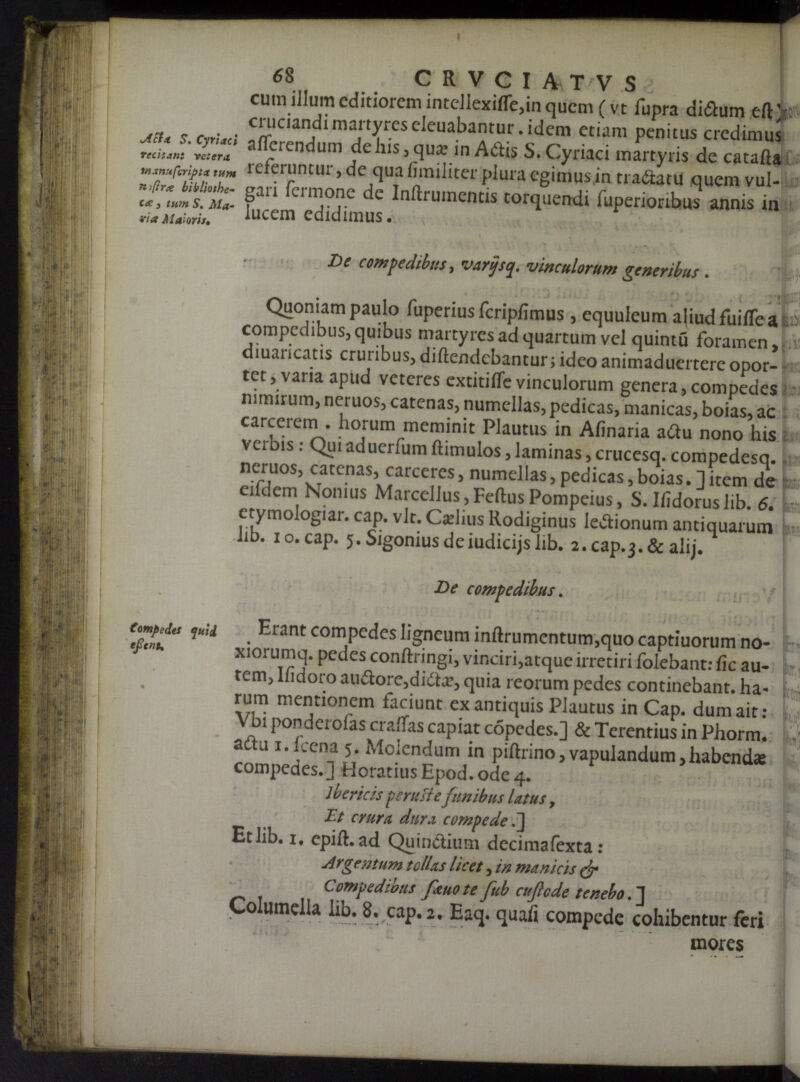 68 CRVCIATVS
cum illum editiorem intellexiſſe, in quem (vt ſupra dictum eſt)
cruciandi martyres eleuabantur. idem etiam penitus credimus
aſſerendum de his, quæ in Actis S. Cyriaci martyris de cataſta
referuntur, de qua ſimiliter plura egimus in tractatu quem vul-
gari ſermone de Inſtrumentis torquendi ſuperioribus annis in
lucem edidimus.
Acta S. Cyriaci
recitant vetera
manuſcripta tum
noſtræ bibliothe-
cæ, tum S. Ma-
riæ Maioris.
De compedibus, varijsq. vinculorum generibus.
Quoniam paulo ſuperius ſcripſimus, equuleum aliud fuiſſe a
compedibus, quibus martyres ad quartum vel quintũ foramen,
diuaricatis cruribus, diſtendebantur; ideo animaduertere opor-
tet, varia apud veteres extitiſſe vinculorum genera, compedes
nimirum, neruos, catenas, numellas, pedicas, manicas, boias, ac
carcerem. horum meminit Plautus in Aſinaria actu nono his
verbis: Qui aduerſum ſtimulos, laminas, crucesq. compedesq.
neruos, catenas, carceres, numellas, pedicas, boias. ] item de
eiſdem Nonius Marcellus, Feſtus Pompeius, S. Iſidorus lib. 6.
etymologiar. cap. vlt. Cælius Rodiginus lectionum antiquarum
lib. 10. cap. 5. Sigonius de iudicijs lib. 2. cap. 3. & alij.
De compedibus.
Compedes quid
eſſent.
Erant compedes ligneum inſtrumentum, quo captiuorum no-
xiorumq. pedes conſtringi, vinciri, atque irretiri ſolebant: ſic au-
tem, Iſidoro auctore, dictæ, quia reorum pedes continebant. ha-
rum mentionem faciunt ex antiquis Plautus in Cap. dum ait:
Vbi ponderoſas craſſas capiat cõpedes.] & Terentius in Phorm.
actu 1. ſcena 5. Molendum in piſtrino, vapulandum, habendæ
compedes.] Horatius Epod. ode 4.
Ibericis peruſte funibus latus,
Et crura dura compede.]
Et lib. 1. epiſt. ad Quinctium decimaſexta:
Argentum tollas licet, in manicis &
Compedibus ſæuo te ſub cuſtode tenebo.]
Columella lib. 8. cap. 2. Eaq. quaſi compede cohibentur feri
mores